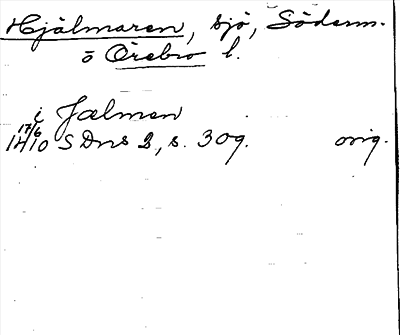 Hjälmaren, sjö, Söderm.
o Örebro l.
i Jælmen
17/6
1410 SDns 2, s. 309. orig.